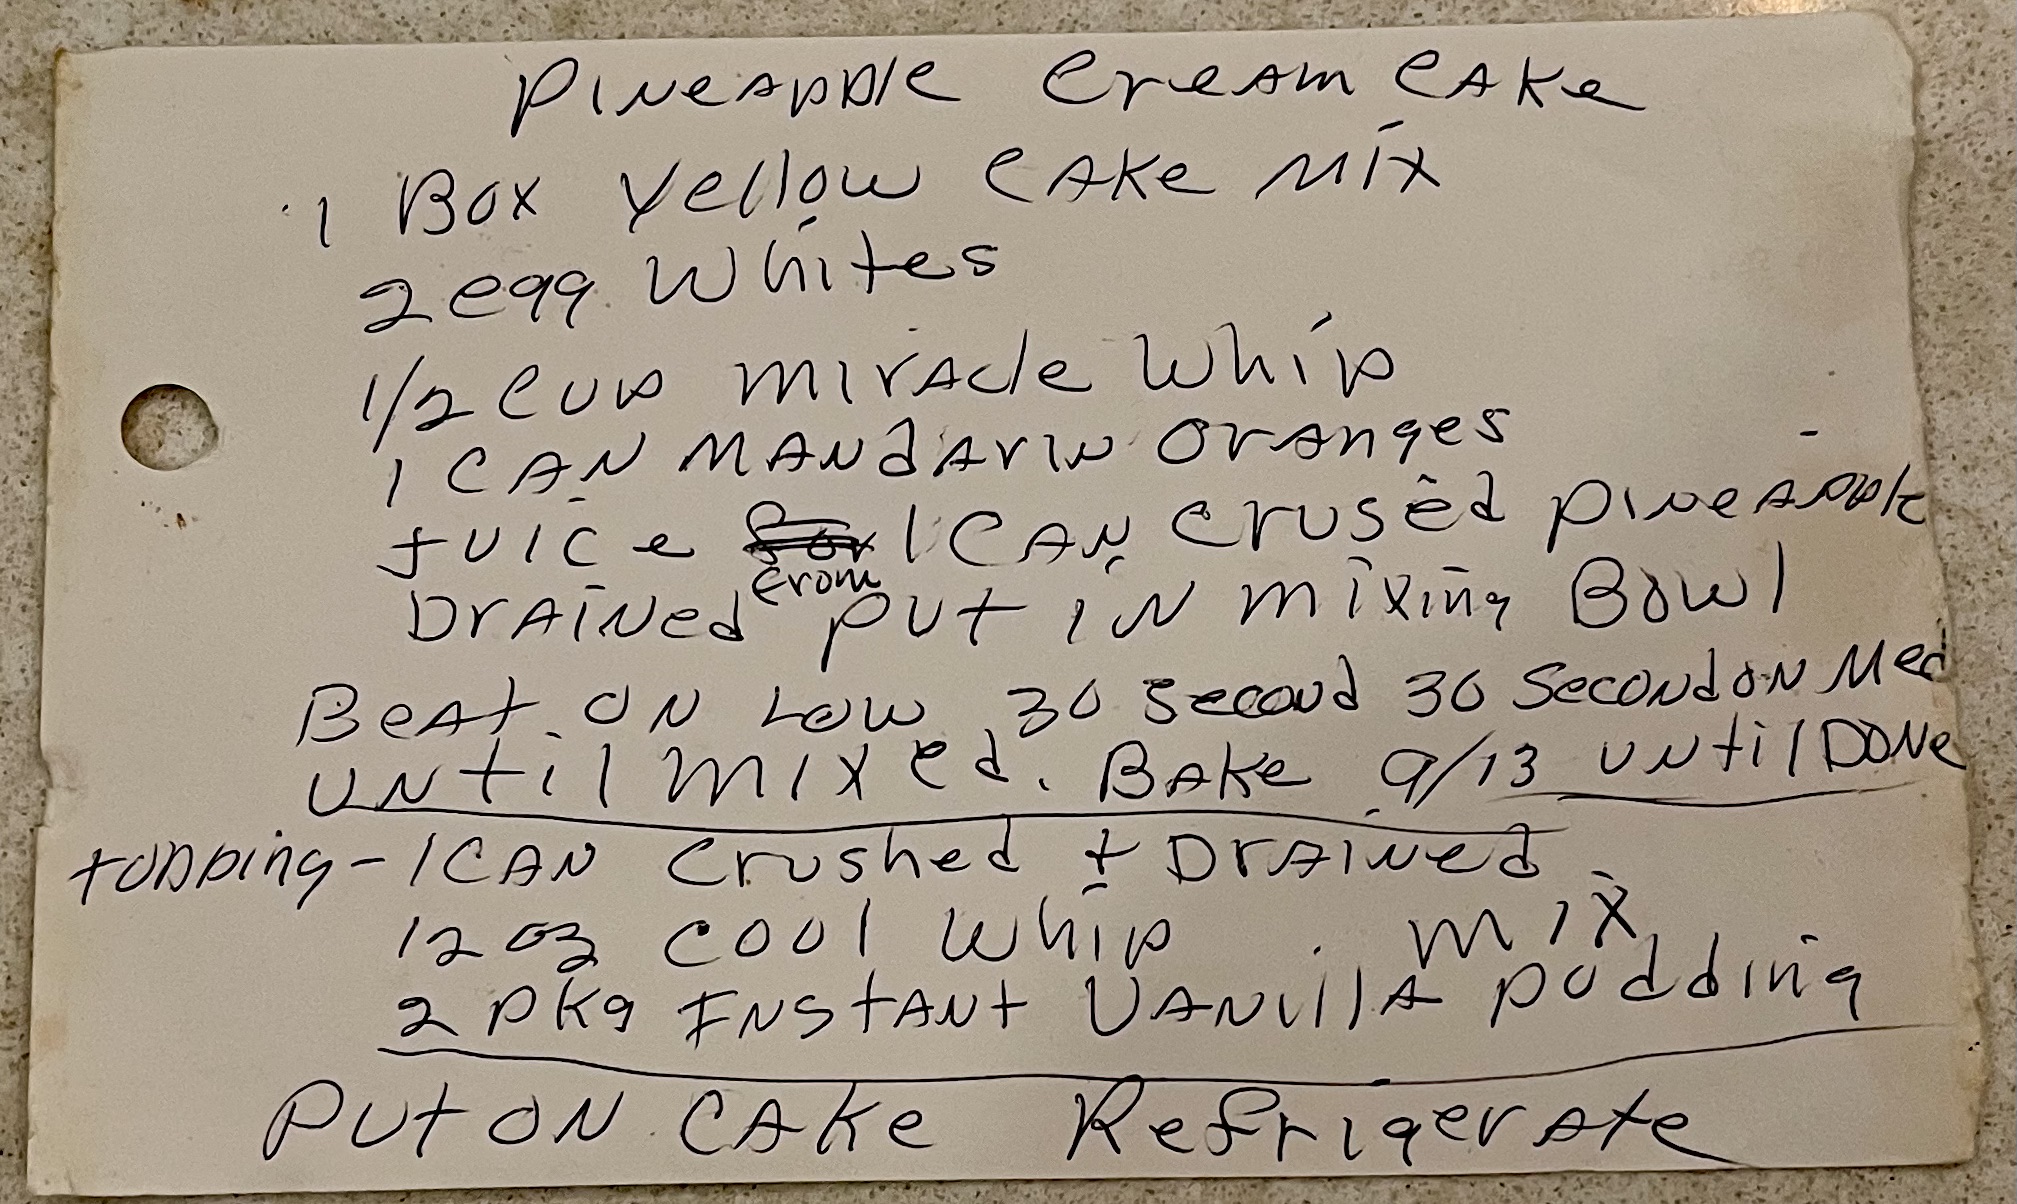 Pineapple Cream Cake
1 Box Yellow Cake Mix
2 egg Whites
1/2 Cup Miracle Whip
1 Can Mandarin Oranges
Juice from 1 Can Crused Pineapple
Drained Put in mixing Bowl
Beat on Low 30 Second 30 Second on Med
until mixed. Bake 9/13 until Done
topping - 1 Can Crushed + Drained
12 oz Cool Whip Mix
2 pkg Instant Vanilla pudding
Put on Cake Refrigerate